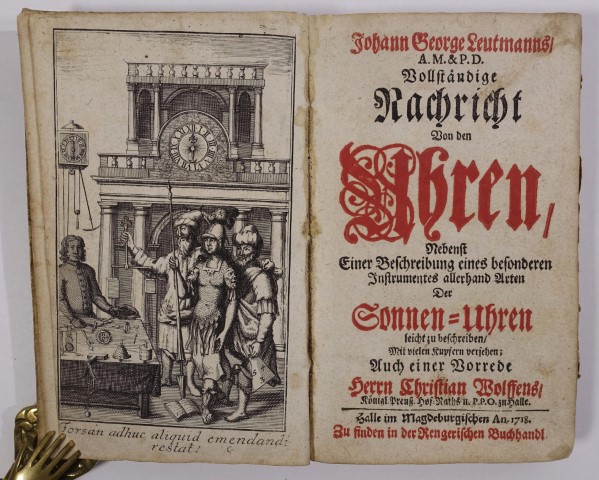 forsan adhuc aliquid emendandi
restat:
Johann George Leutmanns/
A.M.& P.D.
Vollständige
Nachricht
Von den
Uhren,
Nebenst
Einer Beschreibung eines besonderen
Instrumentes allerhand Arten
Der
Sonnen-Uhren
leicht zu beschreiben/
Mit vielen Kupfern versehen;
Auch einer Vorrede
Herrn Christian Wolffens/
Königl. Preuß. Hof-Raths u. P.P.O. zu Halle.
Halle im Magdeburgischen An. 1718.
Zu finden in der Rengerischen Buchhandl.